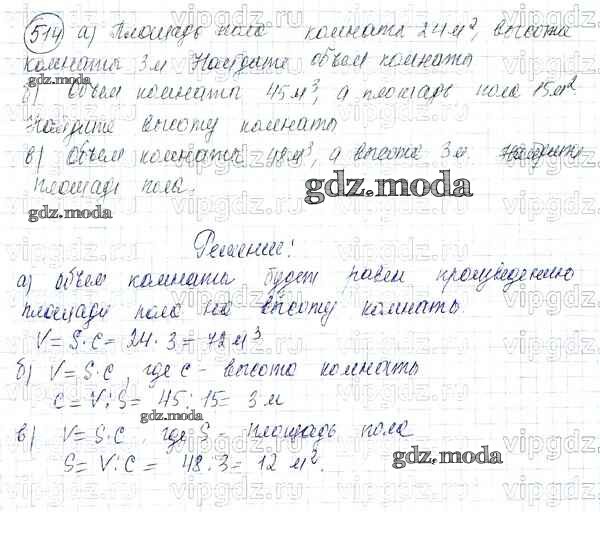 514 а) Площадь пола комнаты 24 м², высота
комнаты 3 м Найдите объем комнаты
gdz.moda
б) Объем комнаты 45 м³, а площадь пола 15 м²
Найдите высоту комнаты
в) Объем комнаты 48 м³, а высота 3 м. Найдите
площадь пола.
gdz.moda
gdz.moda
Решение:
а) объем комнаты будет равен произведению
площади пола на высоту комнаты.
V = S·c = 24·3 = 72 м³
б) V = S·c, где c - высота комнаты
c = V:S = 45:15 = 3 м
gdz.moda
в) V = S·c, где S - площадь пола
S = V:c = 48:3 = 12 м².
gdz.moda